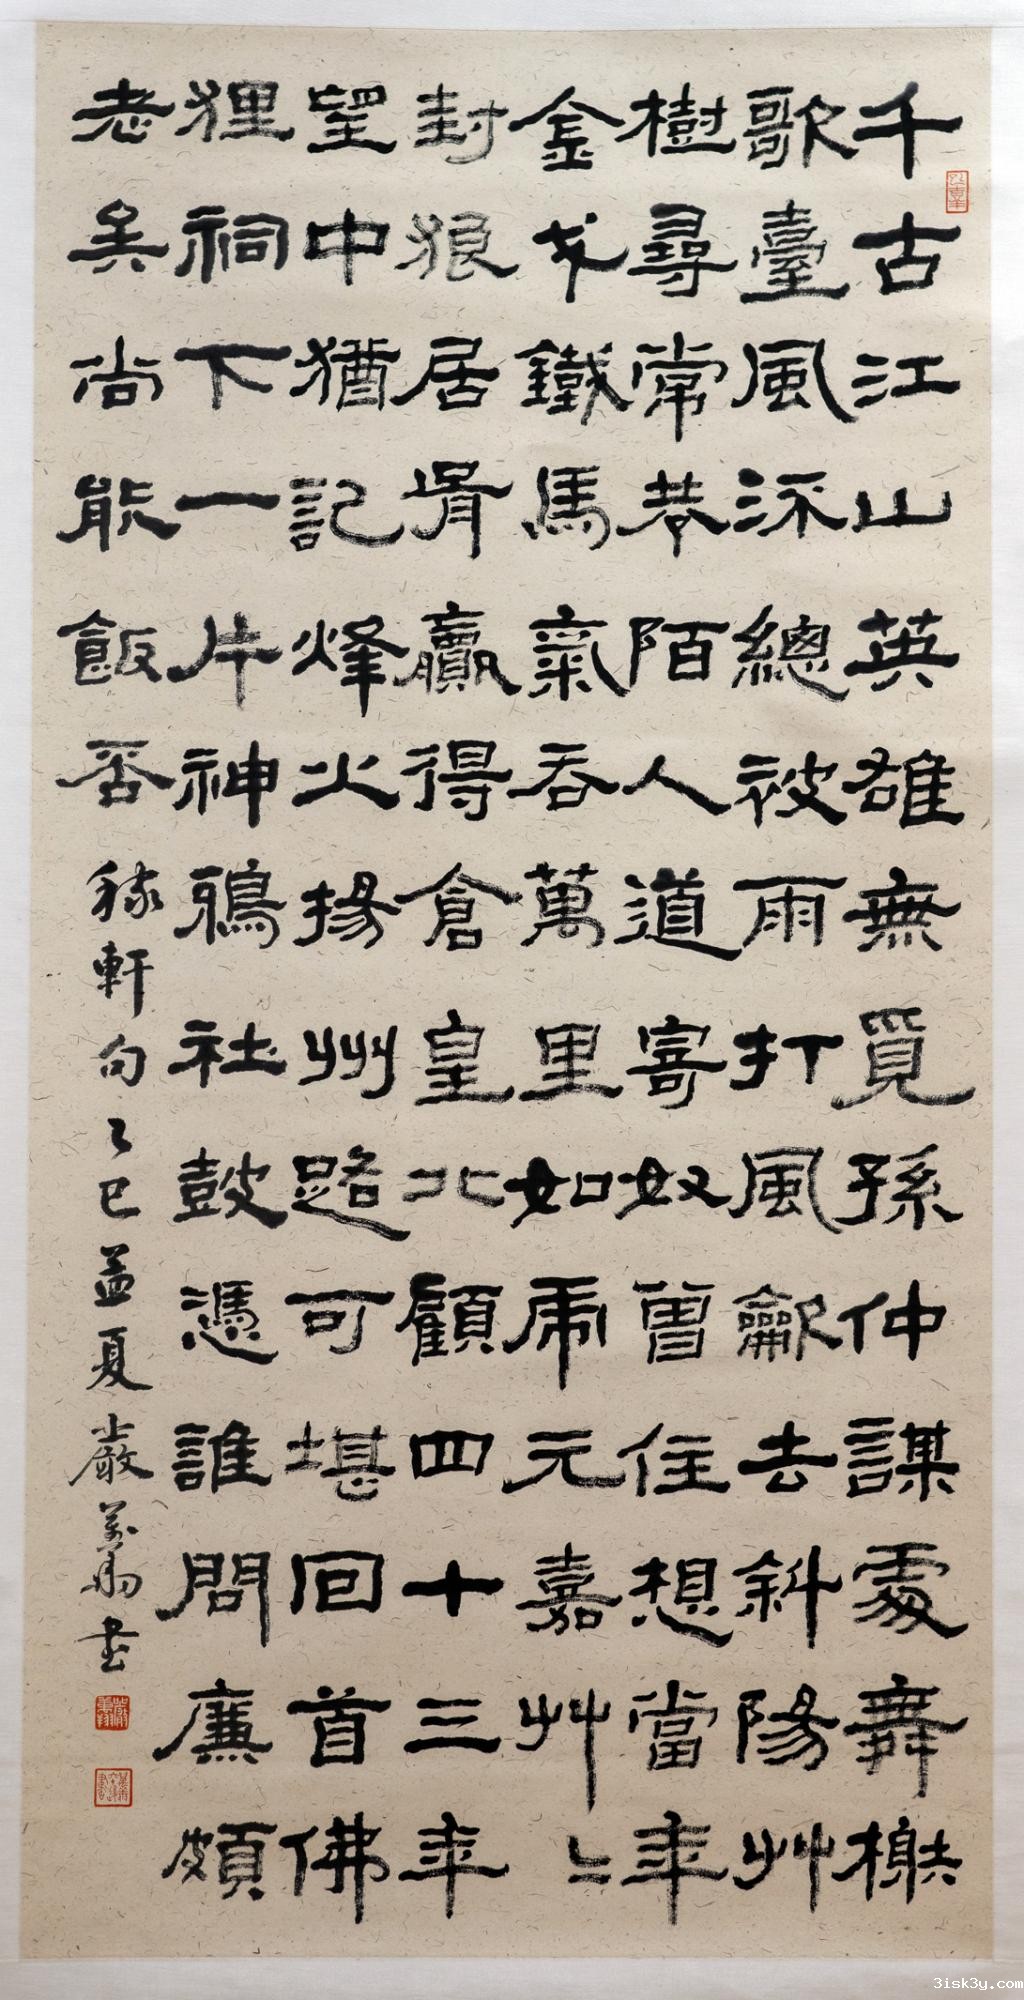 千古江山英雄無覓孫仲謀處舞榭
歌臺風流總被雨打風龡去斜陽艸
樹尋常巷陌人道寄奴曾住想當年
金戈鐵馬氣吞萬里如虎元嘉艸〻
封狼居胥贏得倉皇北顧四十三年
望中猶記烽火揚州路可堪回首佛
狸祠下一片神鴉社鼓憑誰問廉頗
老矣尚能飯否 稼軒句 乙巳孟夏嚴書
3isk3y.com